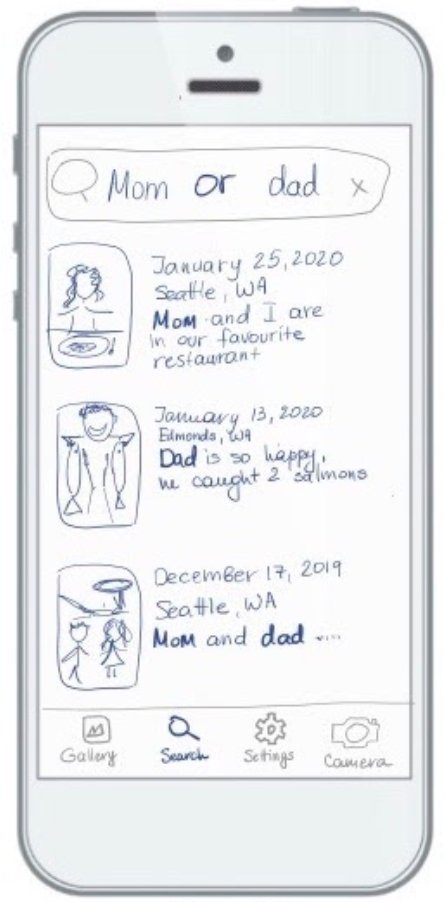 Mom or dad x
January 25, 2020
Seattle, WA
Mom and I are
in our favourite
restaurant
January 13, 2020
Edmonds, WA
Dad is so happy,
he caught 2 salmons
December 17, 2019
Seattle, WA
Mom and dad ....
Gallery Search Settings Camera